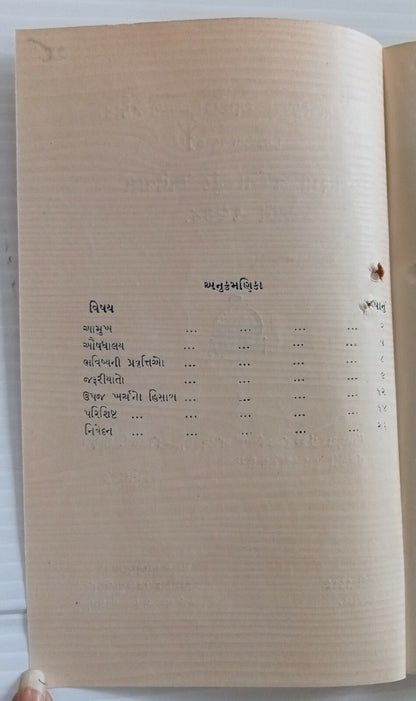 અનુક્રમણિકા
વિષય પાનું
આમુખ ... ... ... ... ૨
ઔષધાલય ... ... ... ... ૫
ભવિષ્યની પ્રવૃત્તિઓ ... ... ... ૮
જરૂરીયાતો ... ... ... ... ૯
ઉપજ ખર્ચનો હિસાબ ... ... ... ૧૨
પરિશિષ્ટ ... ... ... ... ૧૪
નિવેદન ... ... ... ...